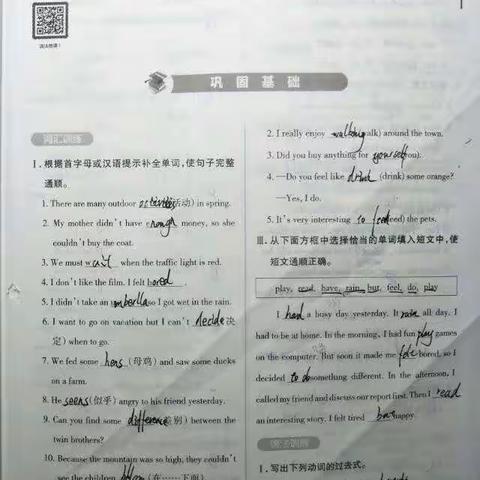 巩固基础
词汇训练
Ⅰ. 根据首字母或汉语提示补全单词,使句子完整
通顺。
1. There are many outdoor (活动) in spring.
2. My mother didn't have enough money, so she
couldn't buy the coat.
3. We must wait when the traffic light is red.
4. I don't like the film. I felt bored.
5. I didn't take an umbrella so I got wet in the rain.
6. I want to go on vacation but I can't decide (决
定) when to go.
7. We fed some hens (母鸡) and saw some ducks
on a farm.
8. He seems (似乎) angry to his friend yesterday.
9. Can you find some difference (差别) between the
twin brothers?
10. Because the mountain was so high, they couldn't
see the children (在……下面).
2. I really enjoy walking (walk) around the town.
3. Did you buy anything for yourself (you).
4. —Do you feel like drink (drink) some orange?
—Yes, I do.
5. It's very interesting to feed (feed) the pets.
Ⅲ. 从下面方框中选择恰当的单词填入短文中,使
短文通顺正确。
play, read, have, rain, but, feel, do, play
I had a busy day yesterday. It rain all day. I
had to be at home. In the morning, I had fun play games
on the computer. But soon it made me bored, so I
decided to do something different. In the afternoon, I
called my friend and discuss our report first. Then I read
an interesting story. I felt tired but happy.
语法训练
Ⅰ. 写出下列动词的过去式。